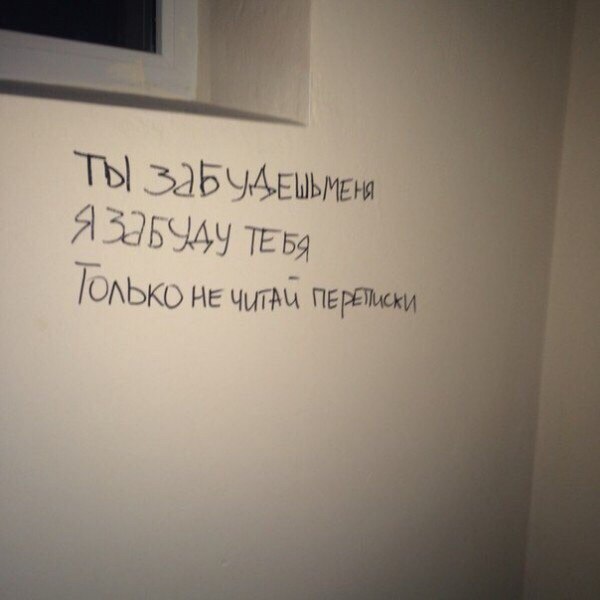 ТЫ ЗАБУДЕШЬ МЕНЯ
Я ЗАБУДУ ТЕБЯ
ТОЛЬКО НЕ ЧИТАЙ ПЕРЕПИСКИ